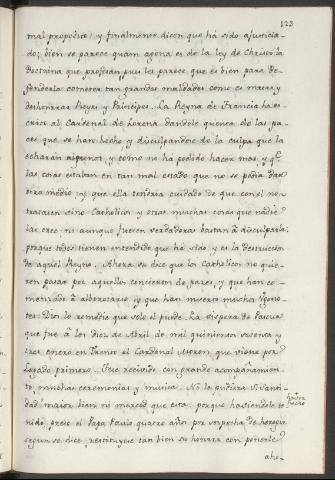 123
mal proposito: y finalmente dicen que há sido ajusticia-
do: bien se parece quàm agena es de la ley de Christo la
Doctrina que professan, pues les parece, que és bien para De-
fenderla cometer tan grandes maldades como es matar, y
deshonrrar Reyes y Principes. La Reyna de Francia ha es-
crito al Cardenal de Lorena dandole quenta de las pa-
ces que se han hecho, y disculpandose de la culpa que la
echarán algunos, y como no ha podido hacer mas, y q.e
las cosas estaban en tan mal estado que no se podia dar
otro medio, y que ella tendria cuidado de que con el no
tratassen sino Catholicos y otras muchas cosas que nadie
las cree, ni aunque fuesen verdaderas bastan á disculparla:
porque todos tienen entendido que há sido, y es la destruccion
de aquel Reyno. Ahora se dice que los Catholicos no quie-
ren pasar por aquellos conciertos de pazes, y que han co-
menzado á alborotarse, y que han muerto mucha Ugono-
tes: Dios lo remedie que solo el puede. La vispera de Pascua
que fue á los diez de Abril, de mil quinientos sesenta y
tres entró en Trento el Cardenal Moron que viene por
Legado primero. Fue recivido con grande acompañamien-
to, muchas ceremonias y musica. No le pudiera Su Santi-
dad maior bien ni merced que esta: porque haviendole te-
nido preso el Papa Paulo quatro años por sospecha de heregia
segun se dice, restituyese tan bien su honrra con ponerle
aho-